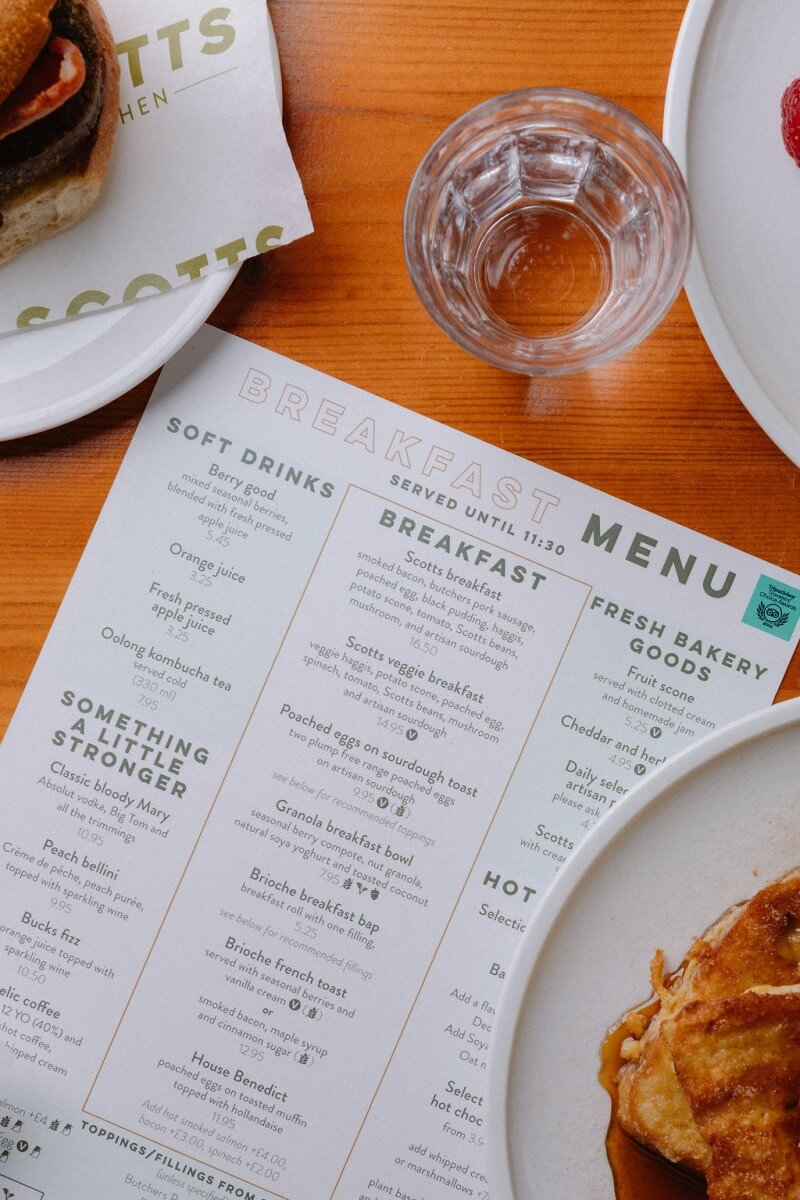 SCOTTS
HEN
SCOTTS
BREAKFAST MENU
SERVED UNTIL 11:30
SOFT DRINKS
Berry good
mixed seasonal berries,
blended with fresh pressed
apple juice
5.45
Orange juice
3.25
Fresh pressed
apple juice
3.25
Oolong kombucha tea
served cold
(330 ml)
7.95
SOMETHING
A LITTLE
STRONGER
Classic bloody Mary
Absolut vodka, Big Tom and
all the trimmings
10.95
Peach bellini
Crème de pêche, peach purée,
topped with sparkling wine
9.95
Bucks fizz
orange juice topped with
sparkling wine
10.50
elic coffee
12 YO (40%) and
shot coffee,
hipped cream
salmon +£4
BREAKFAST
Scotts breakfast
smoked bacon, butchers pork sausage,
poached egg, black pudding, haggis,
potato scone, tomato, Scotts beans,
mushroom, and artisan sourdough
16.50
Scotts veggie breakfast
veggie haggis, potato scone, poached egg,
spinach, tomato, Scotts beans, mushroom
and artisan sourdough
14.95 V
Poached eggs on sourdough toast
two plump free range poached eggs
on artisan sourdough
9.95 V
see below for recommended toppings
Granola breakfast bowl
seasonal berry compete, nut granola,
natural soya yoghurt and toasted coconut
7.95
Brioche breakfast bap
breakfast roll with one filling,
5.25
see below for recommended fillings
Brioche french toast
served with seasonal berries and
vanilla cream V
or
smoked bacon, maple syrup
and cinnamon sugar
12.95
House Benedict
poached eggs on toasted muffin
topped with hollandaise
11.95
Add hot smoked salmon +£4.00,
bacon +£3.00, spinach +£2.00
TOPPINGS/FILLINGS FROM
(unless specified
Butchers
FRESH BAKERY
GOODS
Fruit scone
served with clotted cream
and homemade jam
5.25 V
Cheddar and her
4.95 V
Daily selec
artisan
please ask
Scotts
with cream
HOT
Selectio
Add a fla
Add Soya
Oat
Select
hot choc
from 3.9
add whipped cre
or marshmallows
plant base
Tripadvisor
Travelers'
Choice Awards